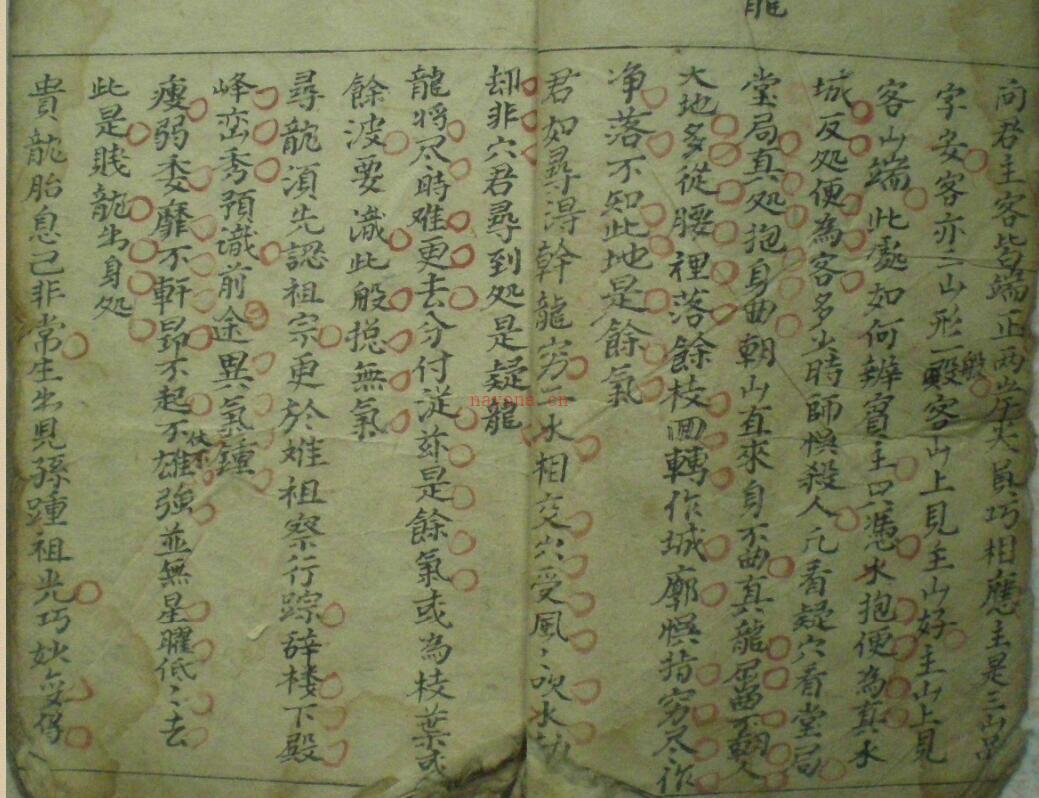 龍
向君主客皆端正两岸尖員巧相應主是三山品
字安客亦三山形一般客山上見主山好主山上見
客山端此處如何辨賓主只憑水抱便為真水
城反処便為客多少時師悮殺人凢看疑穴看堂局
堂局真処抱身曲朝山直來身不曲真龍屈曲不朝人
大地多從腰裡落餘枝囬轉作城廓悮指穷尽作
净落不知此地是餘氣
君如尋淂幹龍穷二水相交穴受風〻吹水劫
却非穴君尋到処是疑龍
龍將尽時难更去分付従兹是餘氣或為枝葉或
餘波要識此般揔無氣
尋龍湏先認祖宗更於难祖察行踪辞楼下殿
峰峦秀預識前途異氣鍾
瘦弱委靡不軒昻不起不伏不雄強並無星曜低〻去
此是賤龍出身処
貴龍胎息己非常生出見孫踵祖光巧妙
nayana.cn